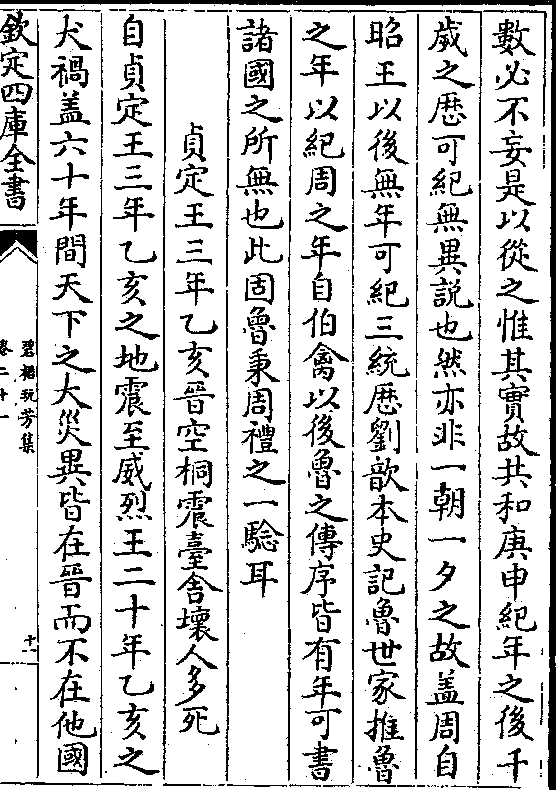 數必不妄是以從之惟其實故共和庚申紀年之後千
歲之厯可紀無異說也然亦非一朝一夕之故葢周自
昭王以後無年可紀三統厯劉歆本史記魯世家推魯
之年以紀周之年自伯禽以後魯之傳序皆有年可書
諸國之所無也此固魯秉周禮之一驗耳
貞定王三年乙亥晉空桐震臺舍壞人多死
自貞定王三年乙亥之地震至威烈王二十年乙亥之
犬禍葢六十年間天下之大災異皆在晉而不在他國
欽定四庫全書
碧梧玩芳集
卷二十一
十一